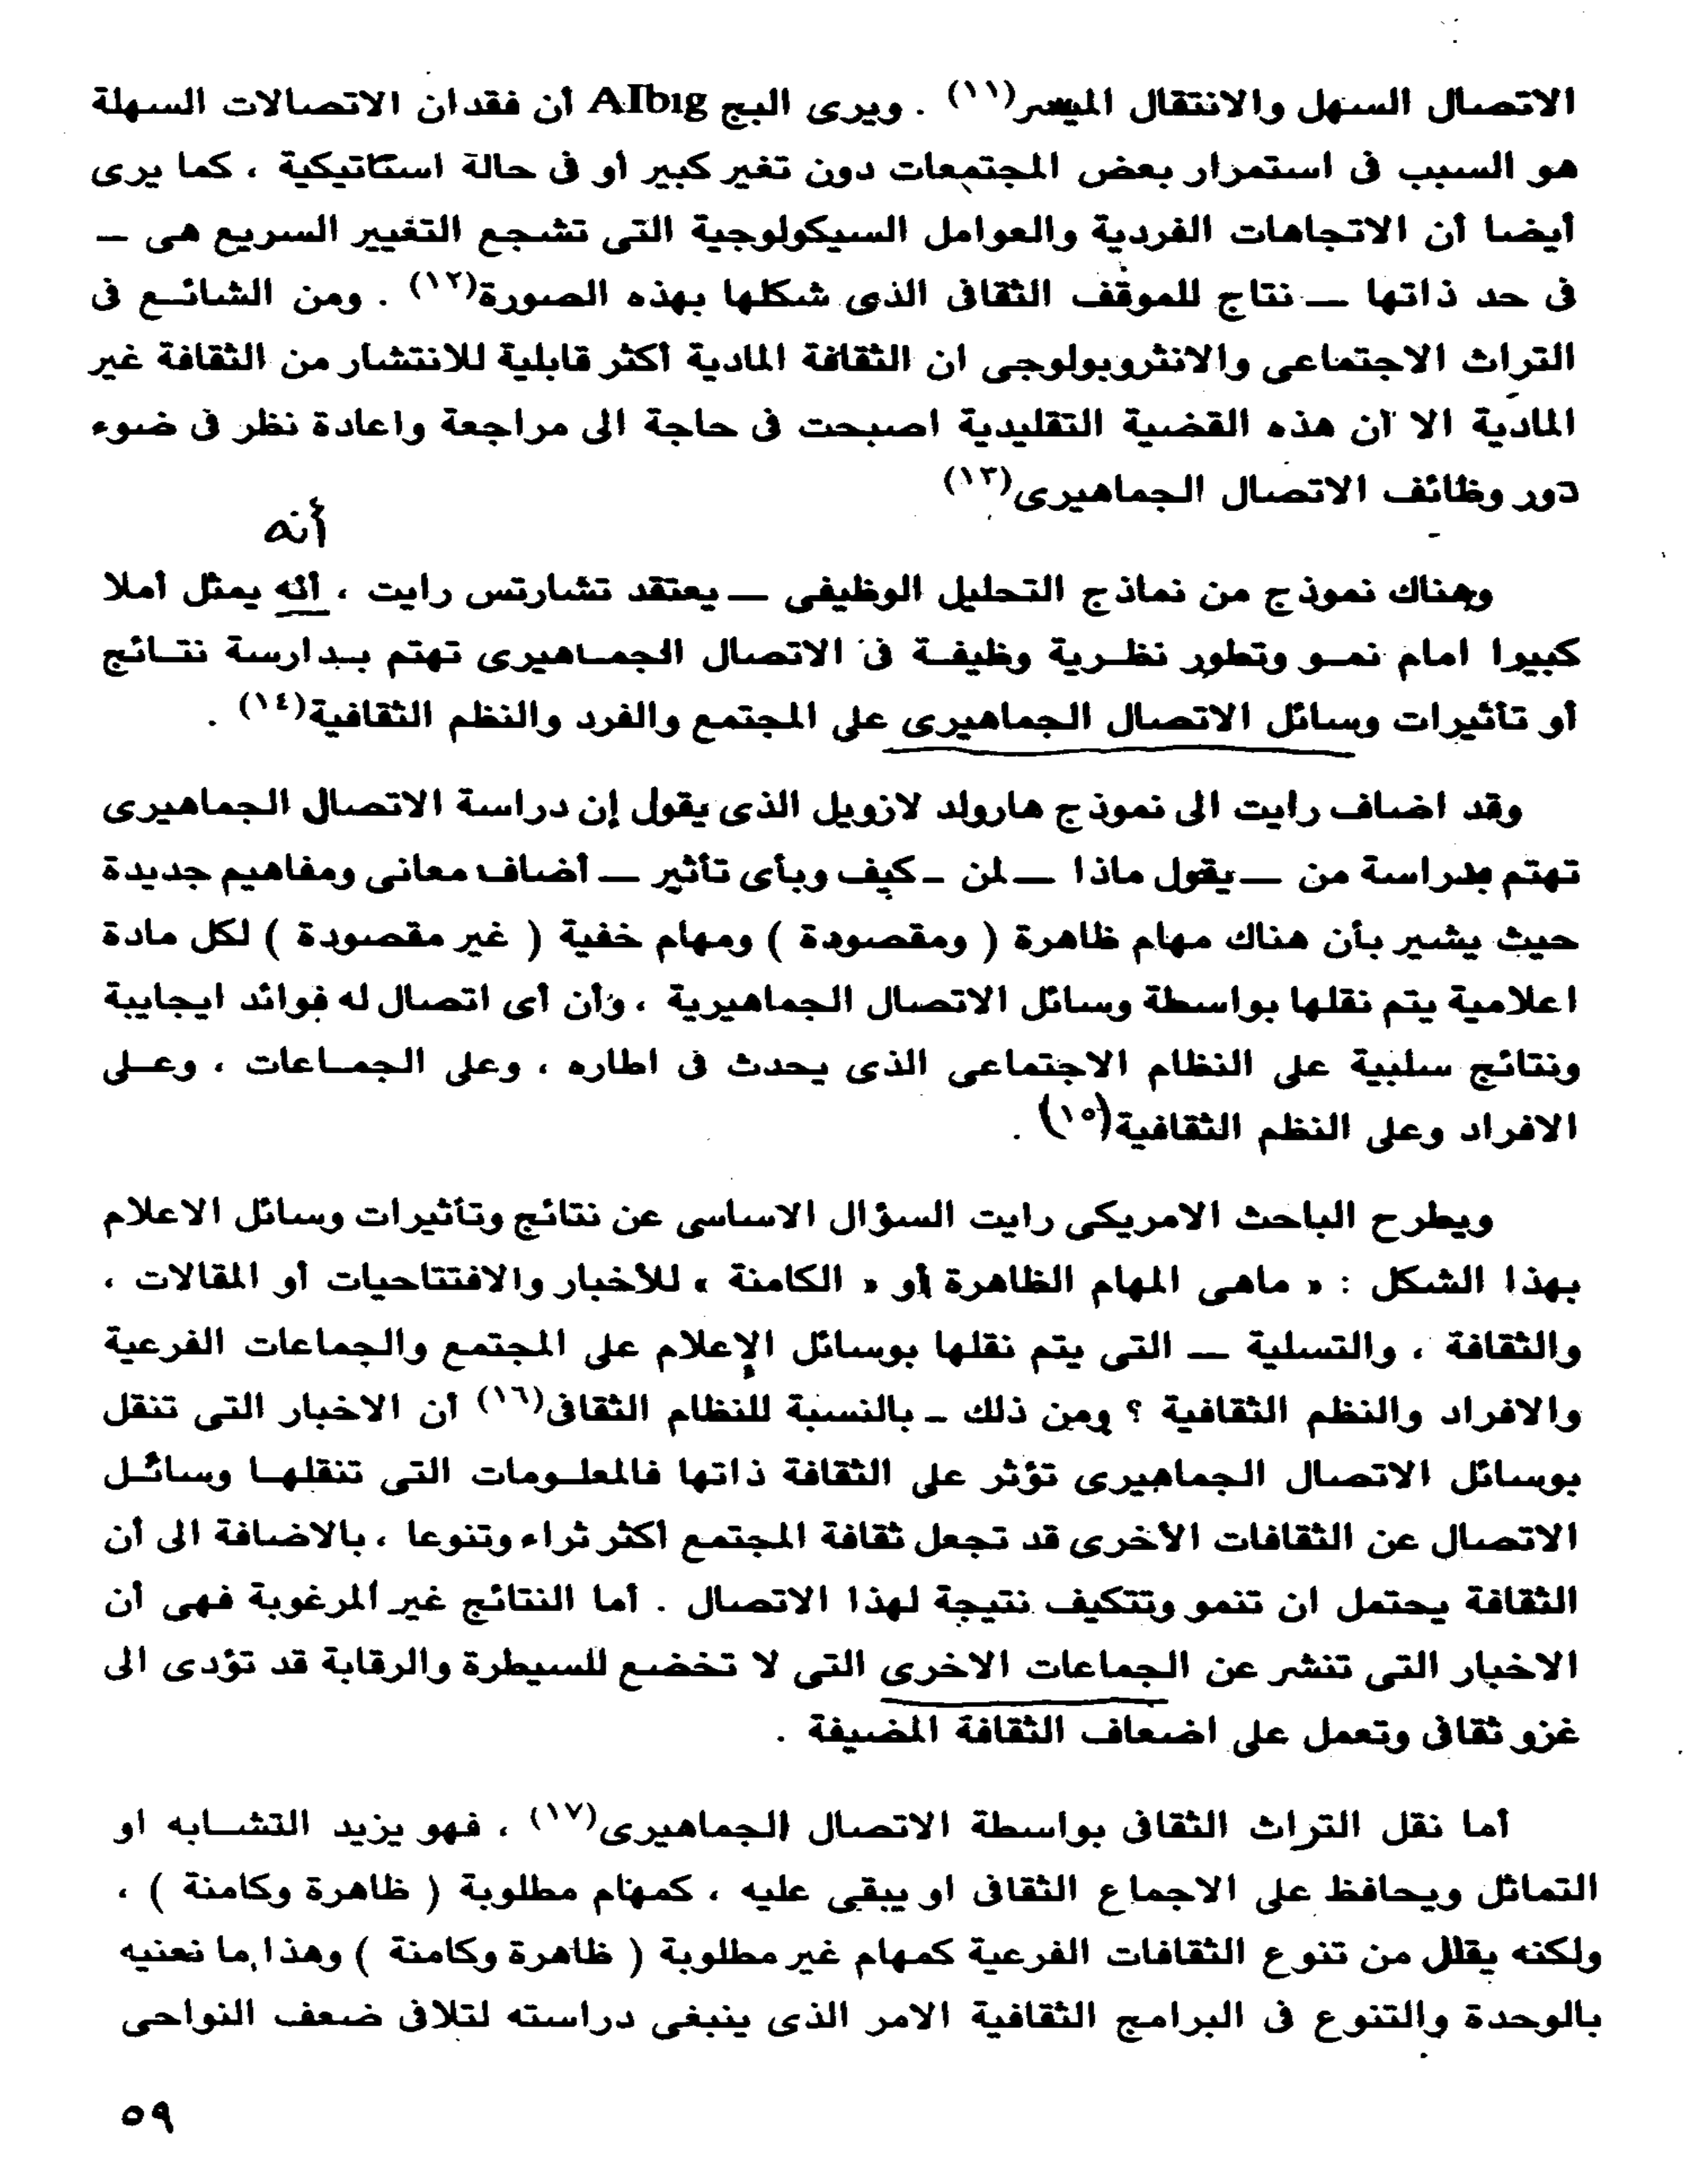 الاتصال السهل والانتقال الميسر(١١) . ويرى البج AIbıg أن فقدان الاتصالات السهلة
هو السبب فى استمرار بعض المجتمعات دون تغير كبير أو فى حالة استاتيكية ، كما يرى
أيضا أن الاتجاهات الفردية والعوامل السيكولوجية التى تشجع التغيير السريع هى —
فى حد ذاتها — نتاج للموقف الثقافى الذى شكلها بهذه الصورة(١٢) . ومن الشائـع فى
التراث الاجتماعى والانثروبولوجى ان الثقافة المادية أكثر قابلية للانتشار من الثقافة غير
المادية الا أن هذه القضية التقليدية اصبحت فى حاجة الى مراجعة واعادة نظر فى ضوء
دور وظائف الاتصال الجماهيرى(١٣)
أنه
وهناك نموذج من نماذج التحليل الوظيفى — يعتقد تشارتس رايت ، أنه يمثل أملا
كبيرا امام نمـو وتطور نظـرية وظيفـة فى الاتصال الجمـاهيرى تهتم بـدارسة نتـائج
أو تأثيرات وسائل الاتصال الجماهيرى على المجتمع والفرد والنظم الثقافية(١٤) .
وقد اضاف رايت الى نموذج هارولد لازويل الذى يقول إن دراسة الاتصال الجماهيرى
تهتم بدراسة من — يقول ماذا — لمن - كيف وبأى تأثير — أضاف معانى ومفاهيم جديدة
حيث يشير بأن هناك مهام ظاهرة ( ومقصودة ) ومهام خفية ( غير مقصودة ) لكل مادة
اعلامية يتم نقلها بواسطة وسائل الاتصال الجماهيرية ، وأن أى اتصال له فوائد ايجابية
ونتائج سلبية على النظام الاجتماعى الذى يحدث فى اطاره ، وعلى الجمـاعات ، وعـلى
الافراد وعلى النظم الثقافية(١٥) .
ويطرح الباحث الامريكى رايت السؤال الاساسى عن نتائج وتأثيرات وسائل الاعلام
بهذا الشكل : « ماهى المهام الظاهرة أو « الكامنة » للأخبار والافتتاحيات أو المقالات ،
والثقافة ، والتسلية — التى يتم نقلها بوسائل الإعلام على المجتمع والجماعات الفرعية
والافراد والنظم الثقافية ؟ ومن ذلك - بالنسبة للنظام الثقافى(١٦) أن الاخبار التى تنقل
بوسائل الاتصال الجماهيرى تؤثر على الثقافة ذاتها فالمعلـومات التى تنقلهـا وسائـل
الاتصال عن الثقافات الأخرى قد تجعل ثقافة المجتمع أكثر ثراء وتنوعا ، بالاضافة الى أن
الثقافة يحتمل ان تنمو وتتكيف نتيجة لهذا الاتصال . أما النتائج غير المرغوبة فهى أن
الاخبار التى تنشر عن الجماعات الاخرى التى لا تخضع للسيطرة والرقابة قد تؤدى الى
غزو ثقافى وتعمل على اضعاف الثقافة المضيفة .
أما نقل التراث الثقافى بواسطة الاتصال الجماهيرى(١٧) ، فهو يزيد التشـابه او
التماثل ويحافظ على الاجماع الثقافى او يبقى عليه ، كمهام مطلوبة ( ظاهرة وكامنة ) ،
ولكنه يقلل من تنوع الثقافات الفرعية كمهام غير مطلوبة ( ظاهرة وكامنة ) وهذا ما نعنيه
بالوحدة والتنوع فى البرامج الثقافية الامر الذى ينبغى دراسته لتلافى ضعف النواحى
٥٩